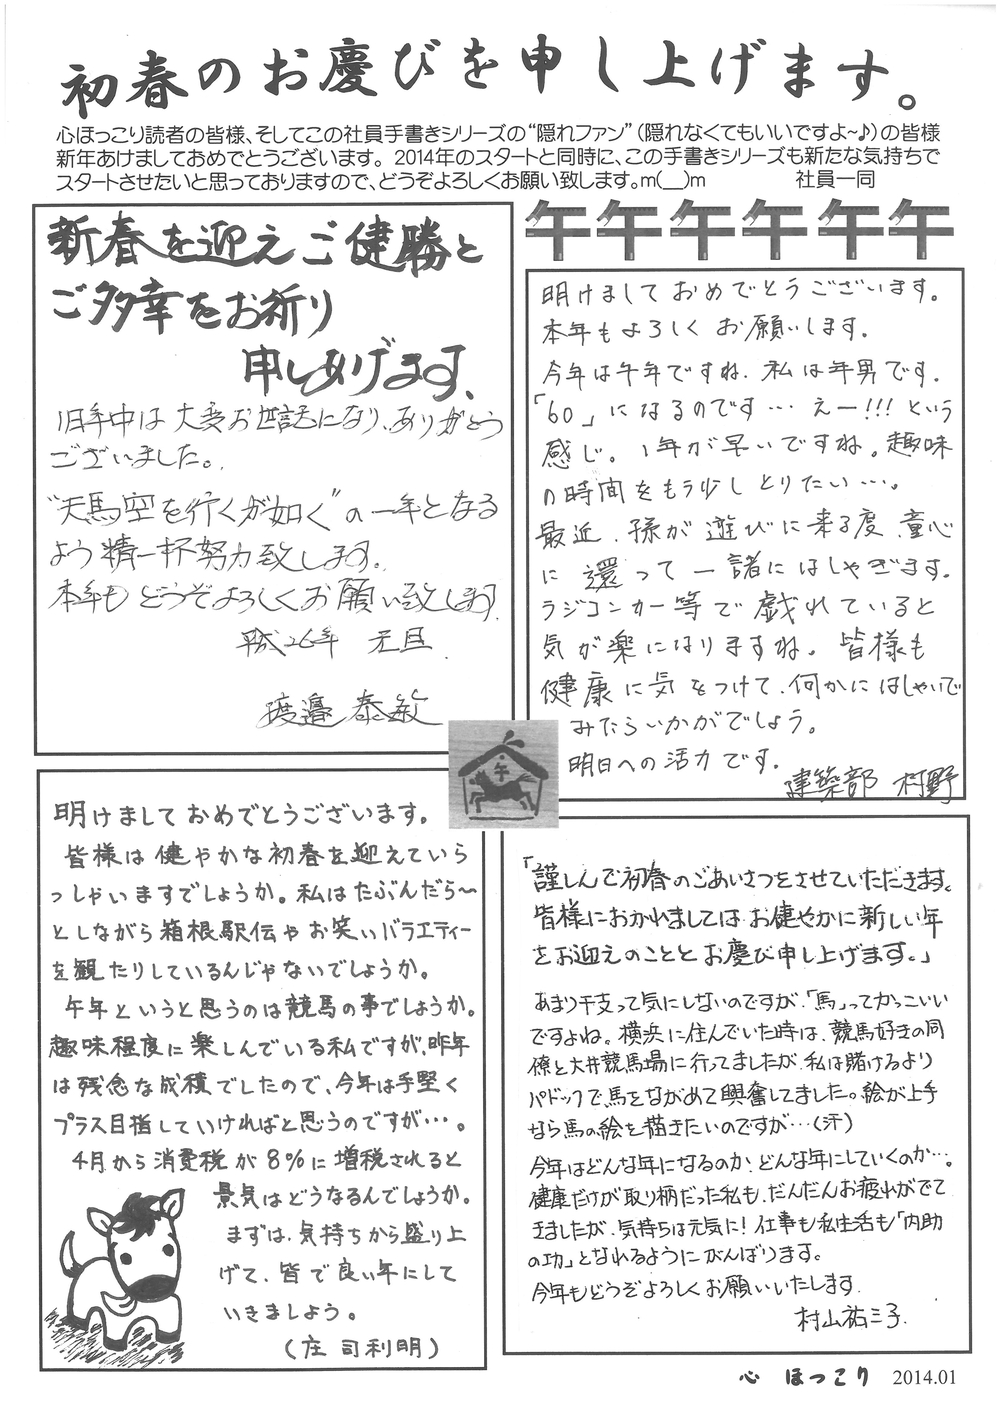 初春のお慶びを申し上げます。
心ほっこり読者の皆様、そしてこの社員手書きシリーズの“隠れファン”(隠れなくてもいいですよ～♪)の皆様
新年あけましておめでとうございます。2014年のスタートと同時に、この手書きシリーズも新たな気持ちで
スタートさせたいと思っておりますので、どうぞよろしくお願い致します。m(__)m 社員一同
新春を迎えご健勝と
ご多幸をお祈り
申しあげます、
旧年中は大変お世話になり、ありがとう
ございました。
“天馬空を行くが如く”の一年となる
よう精一杯努力致します。
本年もどうぞよろしくお願い致します
平成26年 元旦
渡邉 泰敏
午午午午午午
明けましておめでとうございます。
本年もよろしくお願いします。
今年は午年ですね、私は年男です。
「60」になるのです…えー!!!という
感じ。1年が早いですね。趣味
の時間をもう少しとりたい…。
最近、孫が遊びに来る度、童心
に還って一諸にはしゃぎます。
ラジコンカー等で戯れていると
気が楽になりますね。皆様も
健康に気をつけて、何かにはしゃいで
みたらいかがでしょう。
明日への活力です。
建築部 村野
午
明けましておめでとうございます。
皆様は健やかな初春を迎えていら
っしゃいますでしょうか。私はたぶんだら～
としながら箱根駅伝やお笑いバラエティー
を観たりしているんじゃないでしょうか。
午年というと思うのは競馬の事でしょうか。
趣味程度に楽しんでいる私ですが、昨年
は残念な成積でしたので、今年は手堅く
プラス目指していければと思うのですが…。
4月から消費税が8%に増税されると
景気はどうなるんでしょうか。
まずは、気持ちから盛り上
げて、皆で良い年にして
いきましょう。
(庄司利明)
「謹しんで初春のごあいさつをさせていただきます。
皆様におかれましてはお健やかに新しい年
をお迎えのこととお慶び申し上げます。」
あまり干支って気にしないのですが、「馬」ってかっこいい
ですよね。横浜に住んでいた時は、競馬好きの同
僚と大井競馬場に行ってましたが、私は賭けるより
パドックで馬をながめて興奮してました。絵が上手
なら馬の絵を描きたいのですが…(汗)
今年はどんな年になるのか、どんな年にしていくのか…。
健康だけが取り柄だった私も、だんだんお疲れがでて
きましたが、気持ちは元気に!仕事も私生活も「内助
の功」となれるようにがんばります。
今年もどうぞよろしくお願いいたします。
村山祐三子
心 ほっこり 2014.01